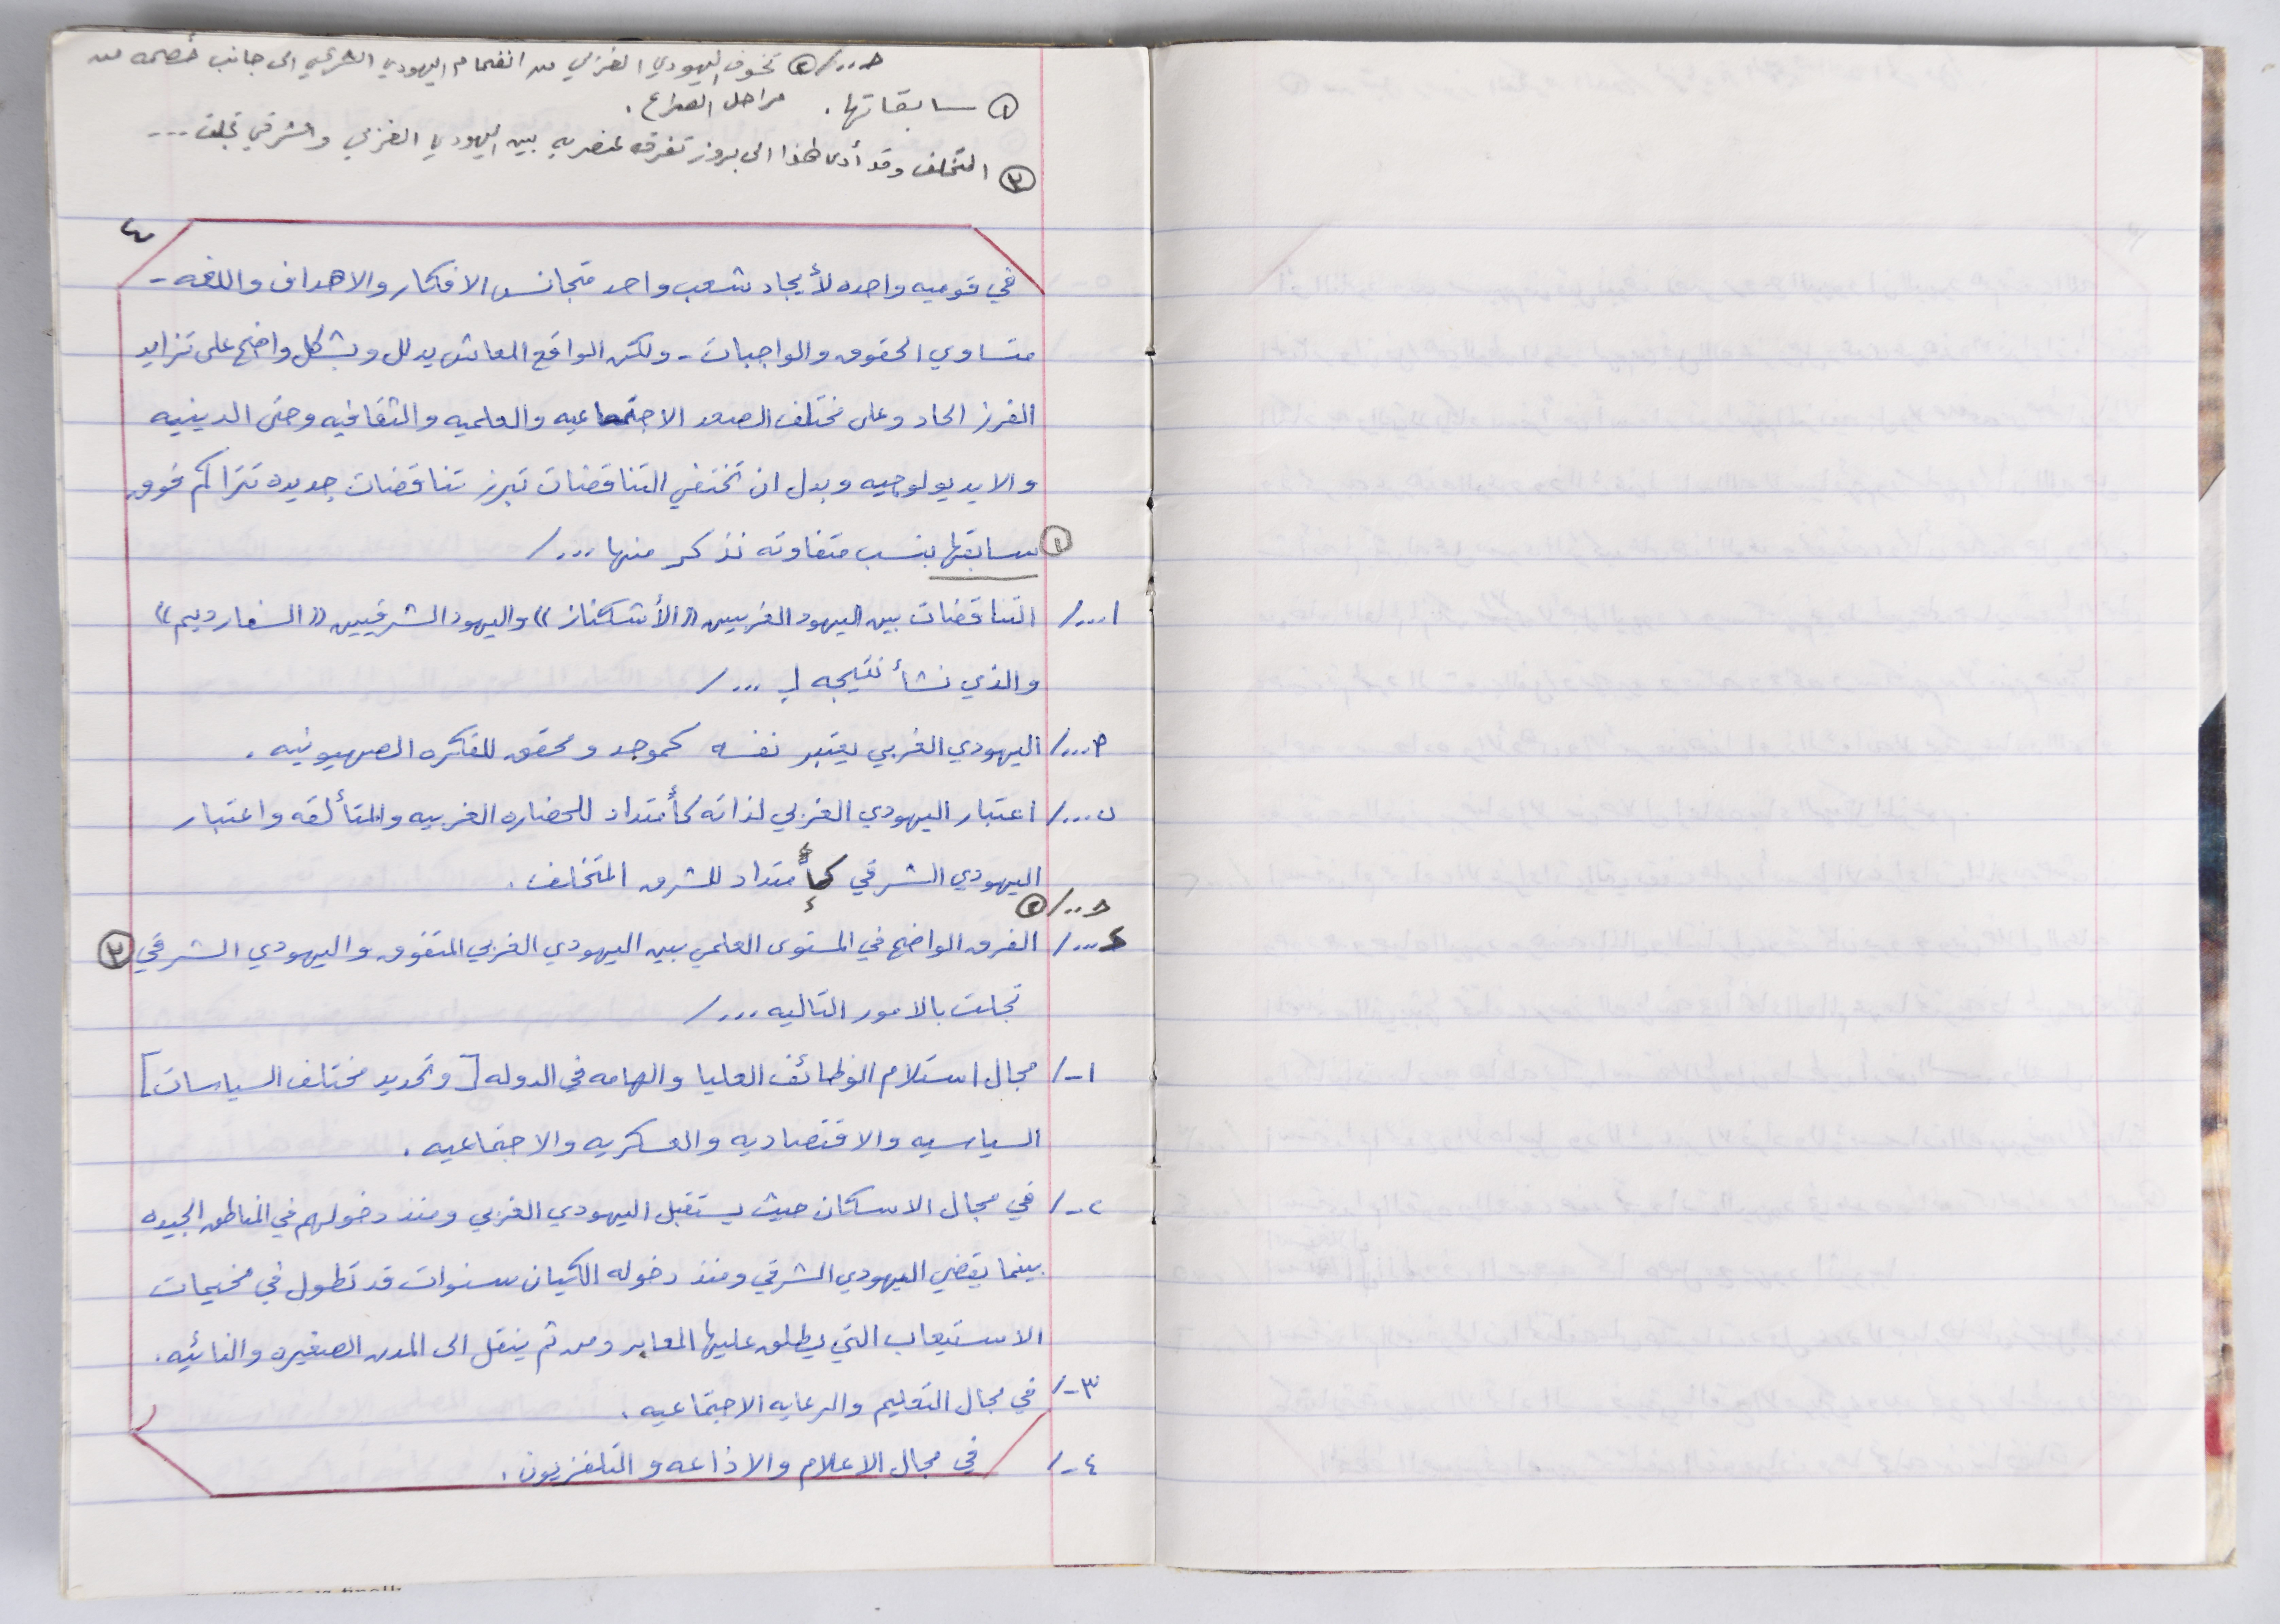 حـ.../ ② تخوف اليهودي الغربي من انضمام اليهودي الشرقي الى جانب خصمه من
① سابقاتها. مراحل الصراع.
③ المتخلف وقد أدى هذا الى بروز تفرقه عنصريه بين اليهودي الغربي والشرقي تجلت ...
٤
في قوميه واحده لأيجاد شعب واحد متجانس الافكار والاهداف واللغه -
متساوي الحقوق والواجبات - ولكن الواقع المعاش يدلل وبشكل واضح على تزايد
الفرز الحاد وعلى مختلف الصعد الاجتماعيه والعلميه والثقافيه وحتى الدينيه
والايديولوجيه وبدل ان تختفي التناقضات تبرز تناقضات جديده تتراكم فوق
① سابقتها بنسب متفاوته نذكر منها .../
١.../ التناقضات بين اليهود الغربيين "الأشكناز" واليهود الشرقيين "السفارديم"
والذي نشأ نتيجه لـ .../
أ.../ اليهودي الغربي يعتبر نفسه كموجد ومحقق للفكره الصهيونيه.
ب.../ اعتبار اليهودي الغربي لذاته كأمتداد للحضاره الغربيه والمتألقه واعتبار
اليهودي الشرقي كإمتداد للشرق المتخلف.
حـ.../ ②
د.../ الفرق الواضح في المستوى العلمي بين اليهودي الغربي المتفوق واليهودي الشرقي ③
تجلت بالامور التاليه .../
١-/ مجال استلام الوظائف العليا والهامه في الدوله [وتحديد مختلف السياسات]
السياسيه والاقتصاديه والعسكريه والاجتماعيه.
٢-/ في مجال الاسكان حيث يستقبل اليهودي الغربي ومنذ دخولهم في المناطق الجيده
بينما يقضي اليهودي الشرقي ومنذ دخوله الكيان سنوات قد تطول في مخيمات
الاستيعاب التي يطلق عليها المعابر ومن ثم ينقل الى المدن الصغيره والنائيه.
٣-/ في مجال التعليم والرعايه الاجتماعيه.
٤-/ في مجال الاعلام والاذاعه والتلفزيون.